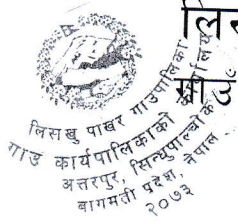 लिसंखु पाखर गाउपालिका
गाउ कार्यपालिकाको कार्यालय
अत्तरपुर, सिन्धुपाल्चोक
बागमती प्रदेश, नेपाल
२०७३